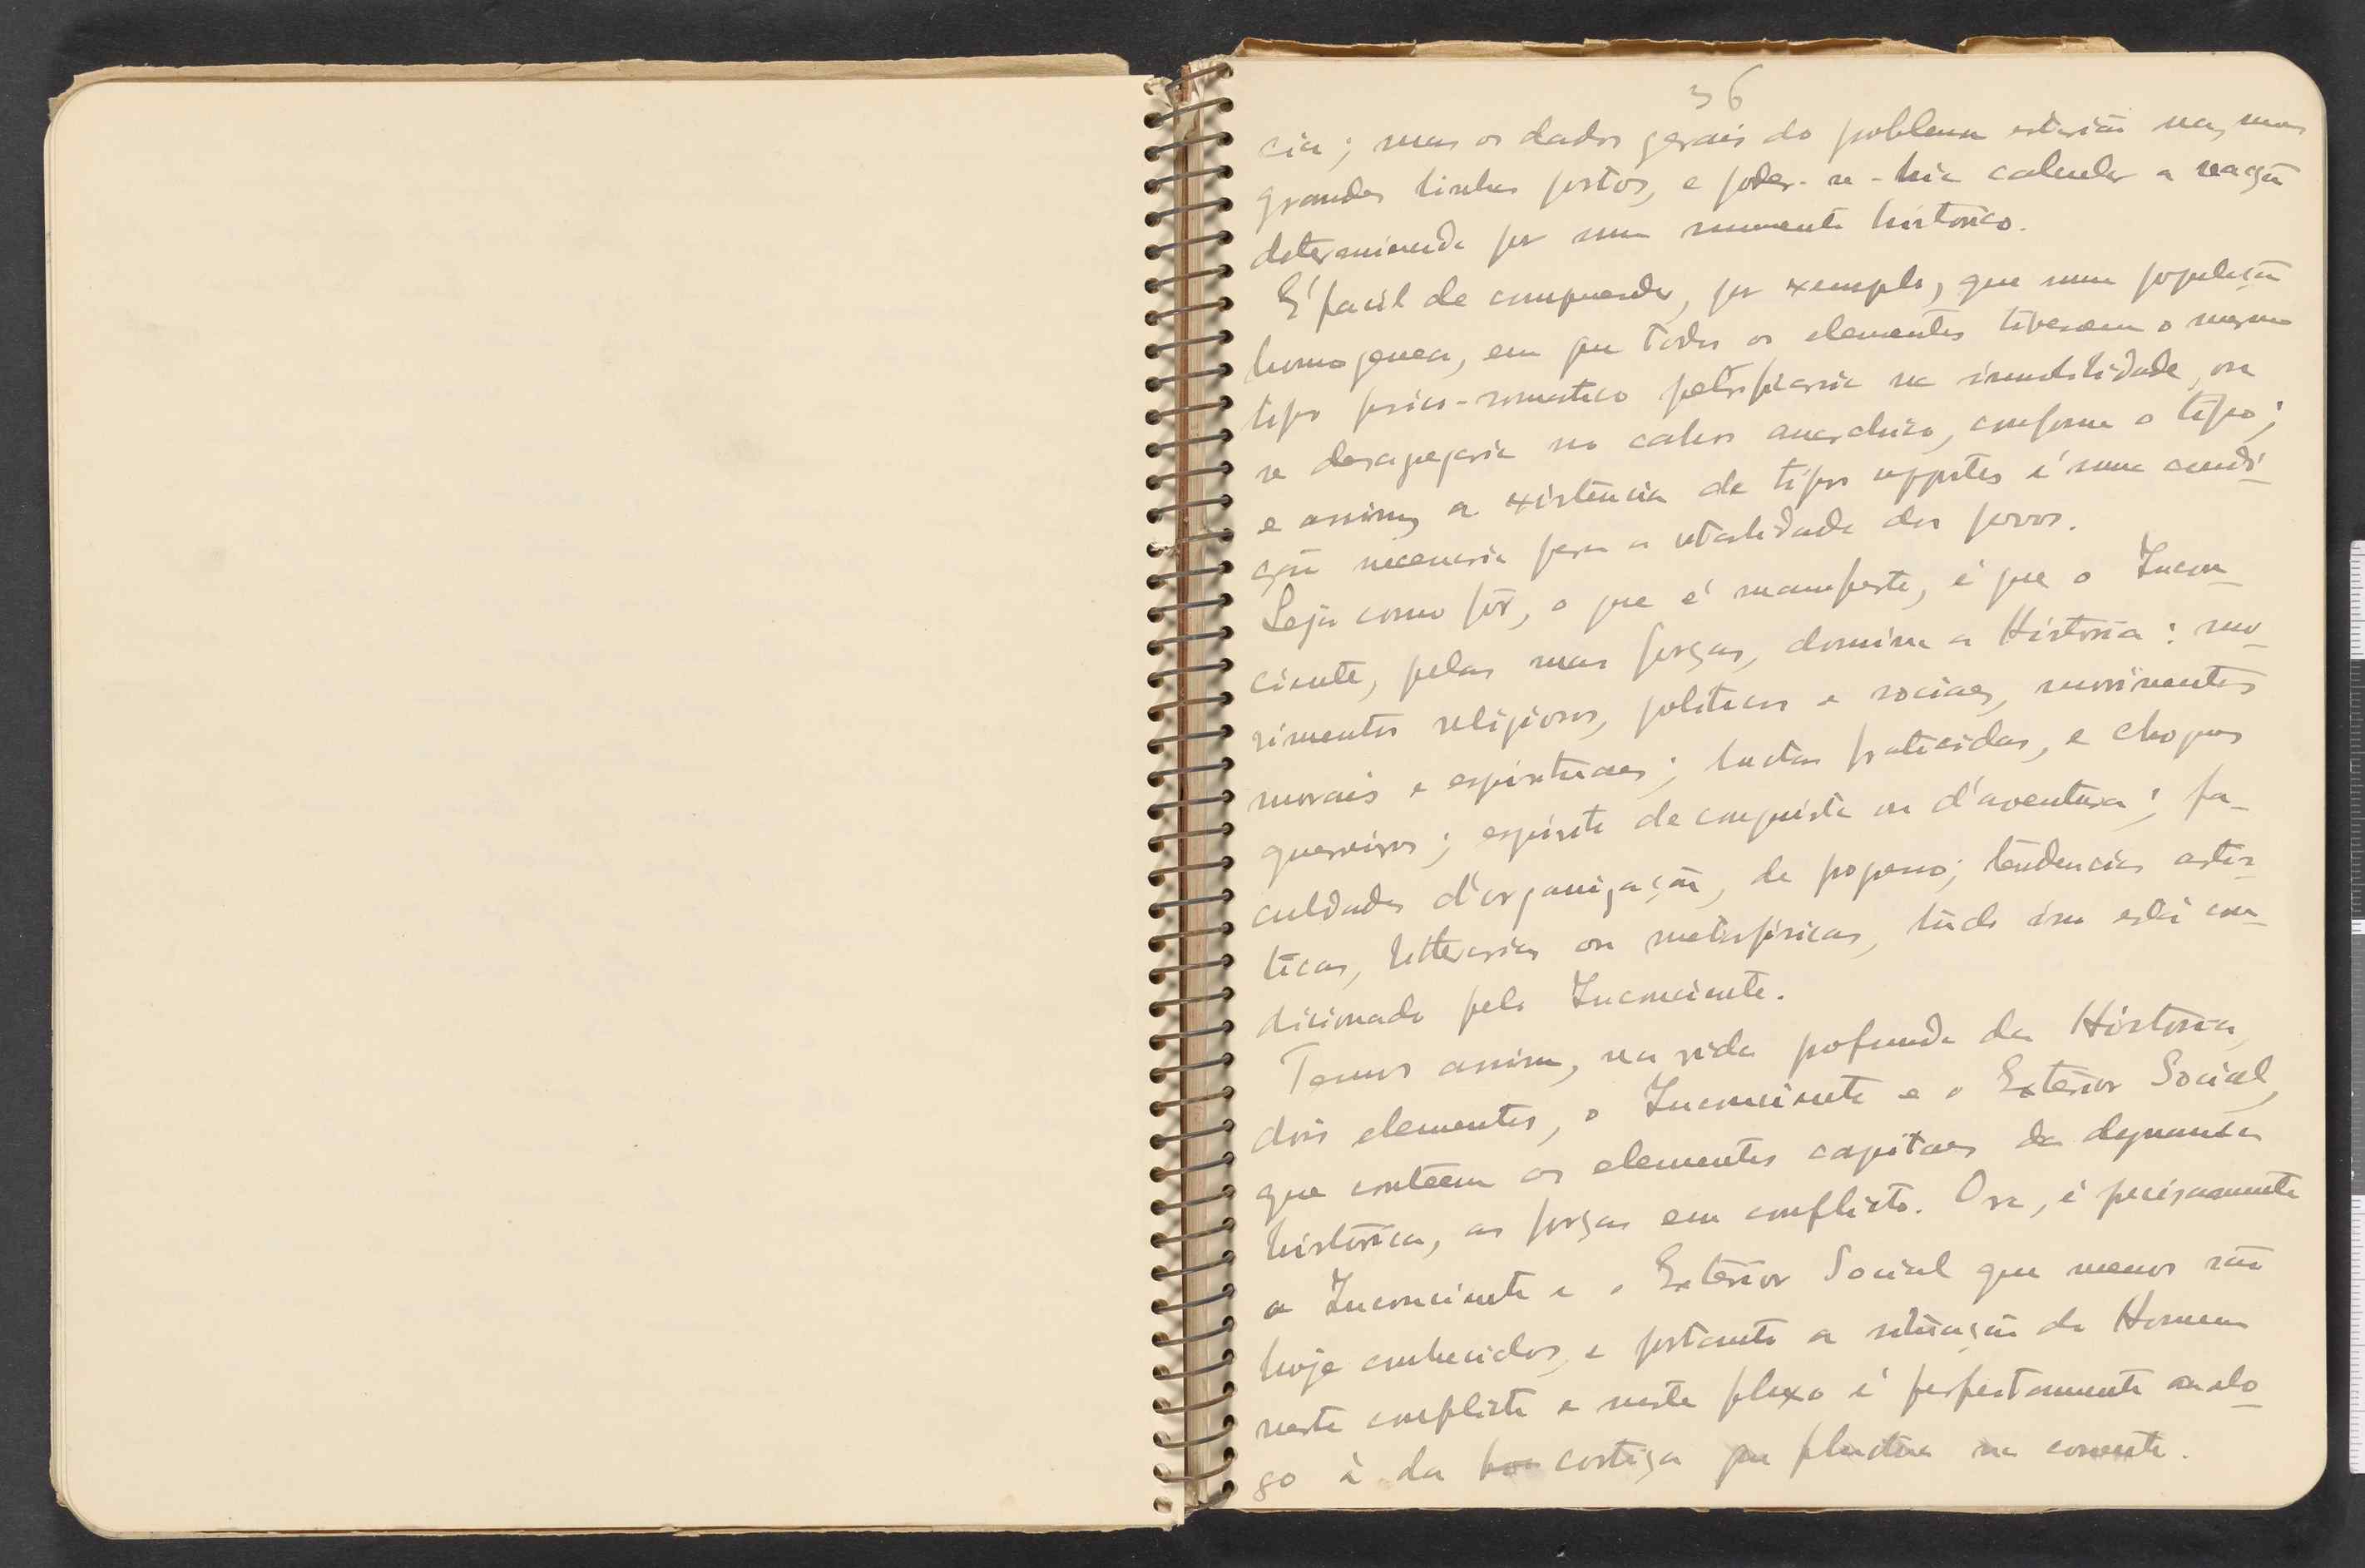 36
cia; mas os dados gerais do problema estarião nas suas
grandes linhas postos, e poder-se-hia calcular a reacção
determinada por um momento historico.
É facil de comprender, por exemplo, que uma população
homogenea, em que todos os elementos tivessem o mesmo
tipo psico-somatico petrificaria na immobilidade, ou
se desagregaria no cahos anarchico, conforme o tipo;
e assim, a existência de tipos oppostos é uma condi-
ção necessaria para a vitalidade dos povos.
Seja como fôr, o que é manifesto, é que o Incon-
ciente, pelas suas forças, domina a Historia: mo-
vimentos religiosos, politicos e sociaes, movimentos
morais e espirituaes; luctas fraticidas, e choques
guerreiros; espirito de conquista ou d'aventura; fa-
culdades d'organização, de progresso; tendencias artis-
ticas, litterarias ou metafisicas, tudo isso está con-
dicionado pelo Inconciente.
Temos assim, na vida profunda da Historia,
dois elementos, o Inconciente e o Exterior Social,
que conteem os elementos capitaes da dynamica
historica, as forças em conflicto. Ora, é precisamente
o Inconciente e o Exterior Social que menos são
hoje conhecidos, e portanto a situação do Homem
neste conflicto e neste fluxo é perfeitamente analo-
go à da cortiça que fluctua na corrente.